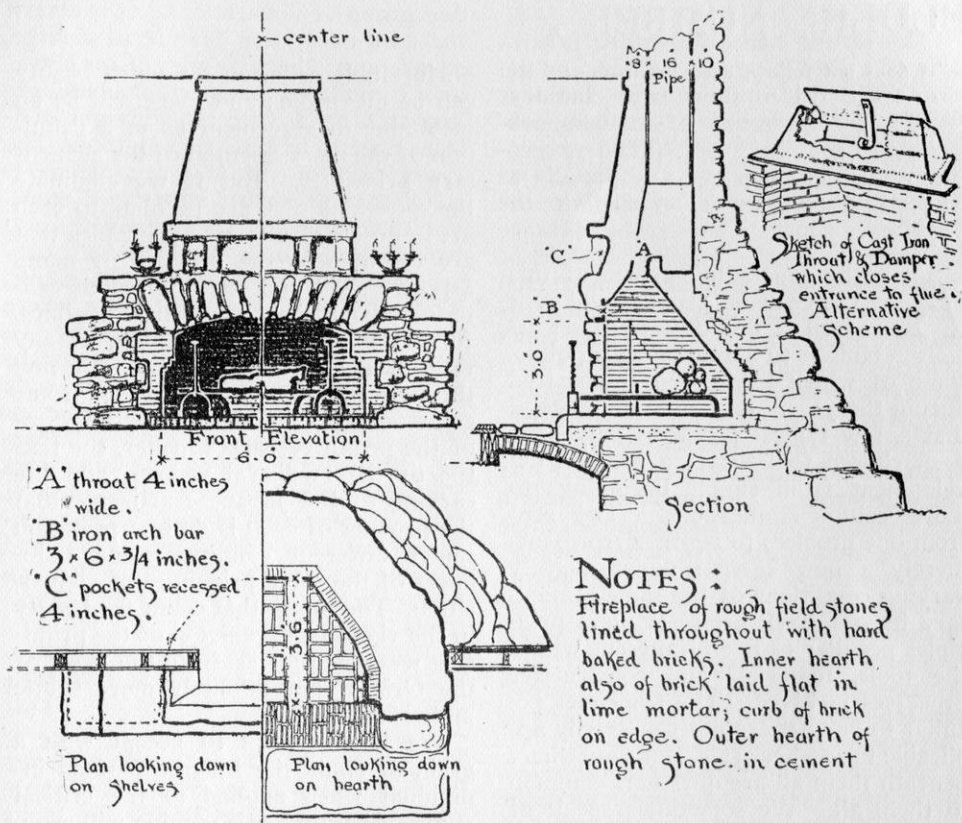 center line
8 16 10
Pipe
C
A
B
3·0
Sketch of Cast Iron
Throat & Damper
which closes
entrance to flue.
Alternative
Scheme
Front Elevation
6·0"
Section
"A" throat 4 inches
wide.
"B" iron arch bar
3·6·3/4 inches.
"C" pockets recessed
4 inches.
3·6"
Plan looking down
on shelves
Plan looking down
on hearth
NOTES:
Fireplace of rough field stones
lined throughout with hard
baked bricks. Inner hearth
also of brick laid flat in
lime mortar; curb of brick
on edge. Outer hearth of
rough stone in cement